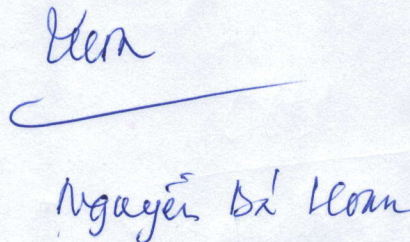 Hoan
Nguyễn Bá Hoan